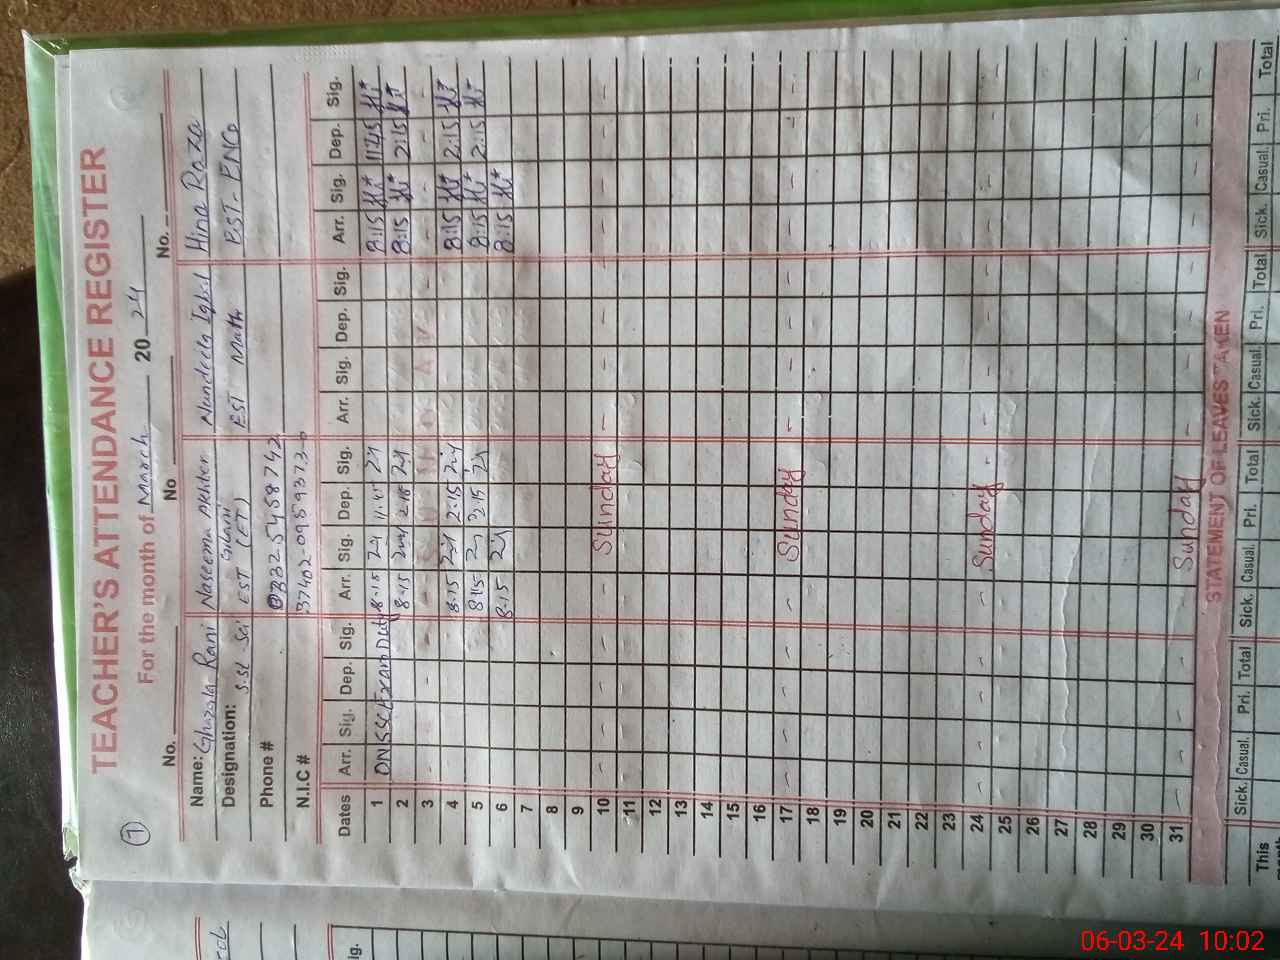 7
TEACHER'S ATTENDANCE REGISTER
For the month of March 20 24
No. No No.
Name: Ghazala Rani Naseema Akhter Gilani Nandeela Iqbal Hina Raza
Designation: S.St Sci EST (ET) EST Math EST-ENG
Phone # 0332 5458742
N.I.C # 37402-0959373-0
Dates Arr. Sig. Dep. Sig. Arr. Sig. Dep. Sig. Arr. Sig. Dep. Sig. Arr. Sig. Dep. Sig.
1 ON SSC Exam Duty 8-15 8:15 11:45
2 8-15 2-15 8:15 2:15
3 - - S U N D A Y - - - -
4 8-15 2:15 8:15 2:15
5 8:15 2:15 8:15 2:15
6 8-15 8:15
7
8
9
10 - - - - - Sunday - - - - -
11
12
13
14
15
16
17 - - - - - Sunday - - - - -
18
19
20
21
22
23
24 - - - - - Sunday - - - - - -
25
26
27
28
29
30
31 - - - - Sunday - - - - -
STATEMENT OF LEAVES TAKEN
Sick. Casual. Pri. Total Sick. Casual. Pri. Total Sick. Casual. Pri. Total Sick. Casual. Pri. Total
This
06-03-24 10:02